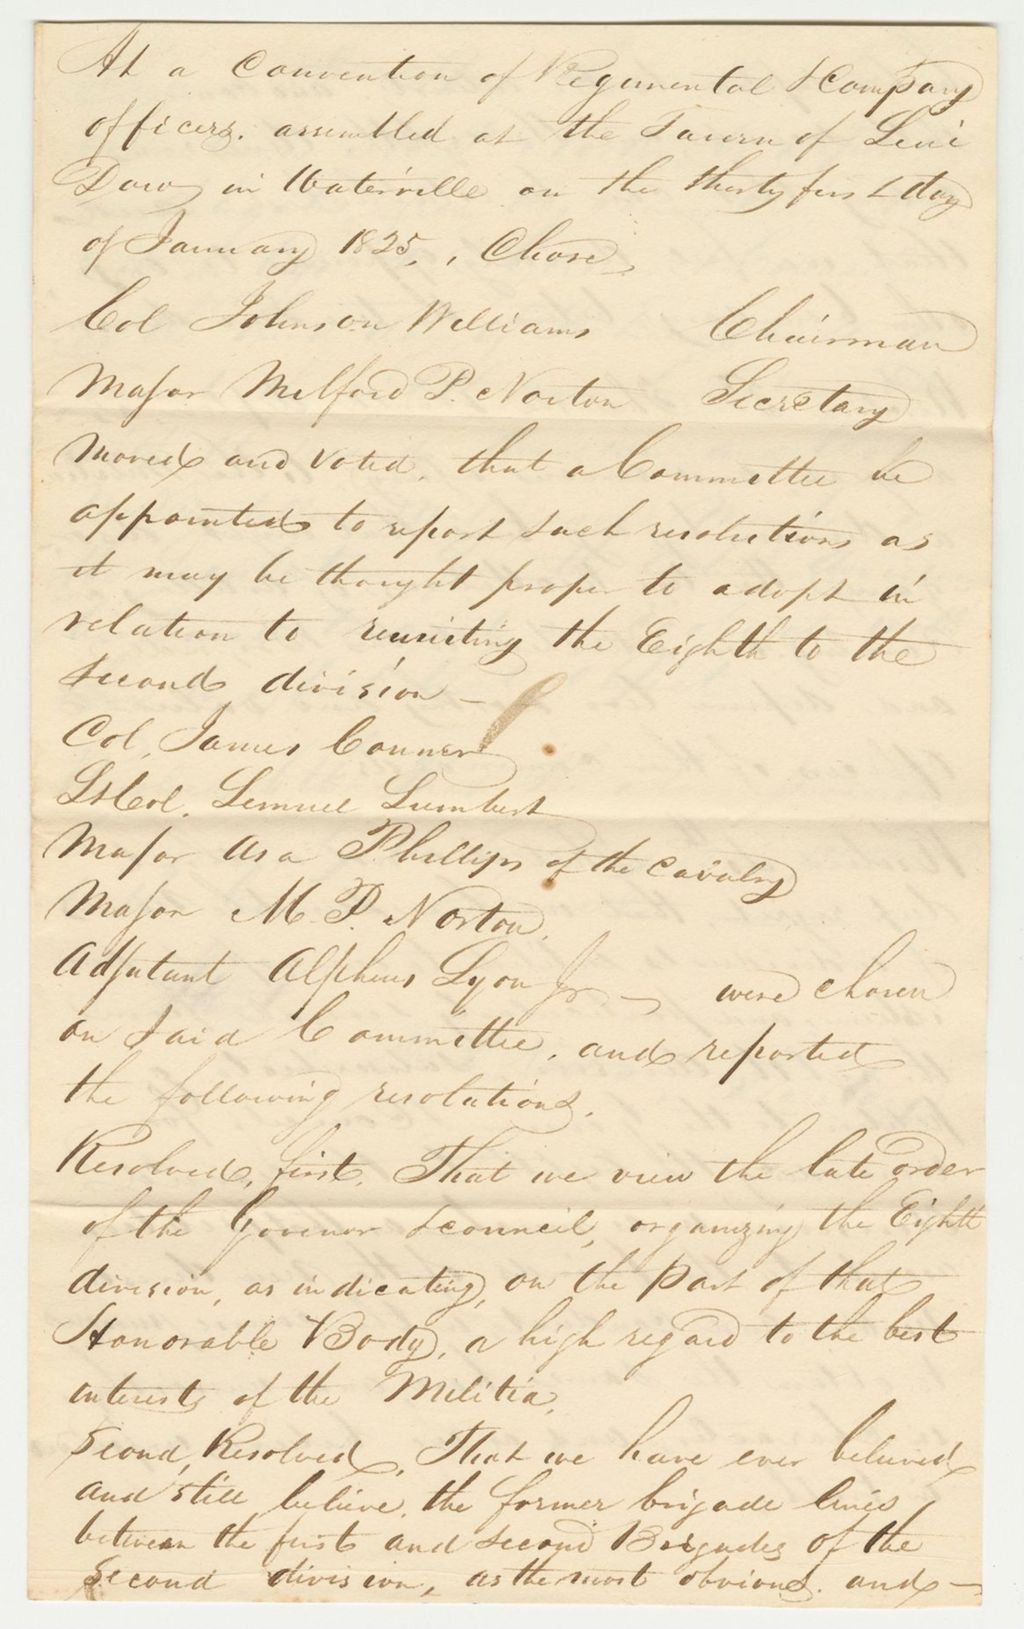 At a Convention of Regimental & Company
officers. assembled at the Tavern of Levi
Dow, in Waterville on the thirty first day
of January 1825, , Chose,
Col Johnson Williams Chairman
Major Milford P. Norton Secretary
Moved and voted, that a Committee be
appointed to report such resolutions as
it may be thought proper to adopt in
relation to reuniting the Eighth to the
second division —
Col, James Conner
Lt Col. Lemuel Lumbert
Major Asa Phillips of the Cavalry
Major M. P. Norton,
Adjutant Alpheus Lyon Jr —, were chosen
on said Committee, and reported
the following resolutions.
Resolved, first, That we view the late order
of the Govenor & council, organizing the Eighth
division, as indicating, on the part of that
Honorable Body, a high regard to the best
interests of the Militia,
Second, Resolved, That we have ever believed
and still believe, the former brigade lines
between the first and second Brigades of the
Second division, as the most obvious. and —